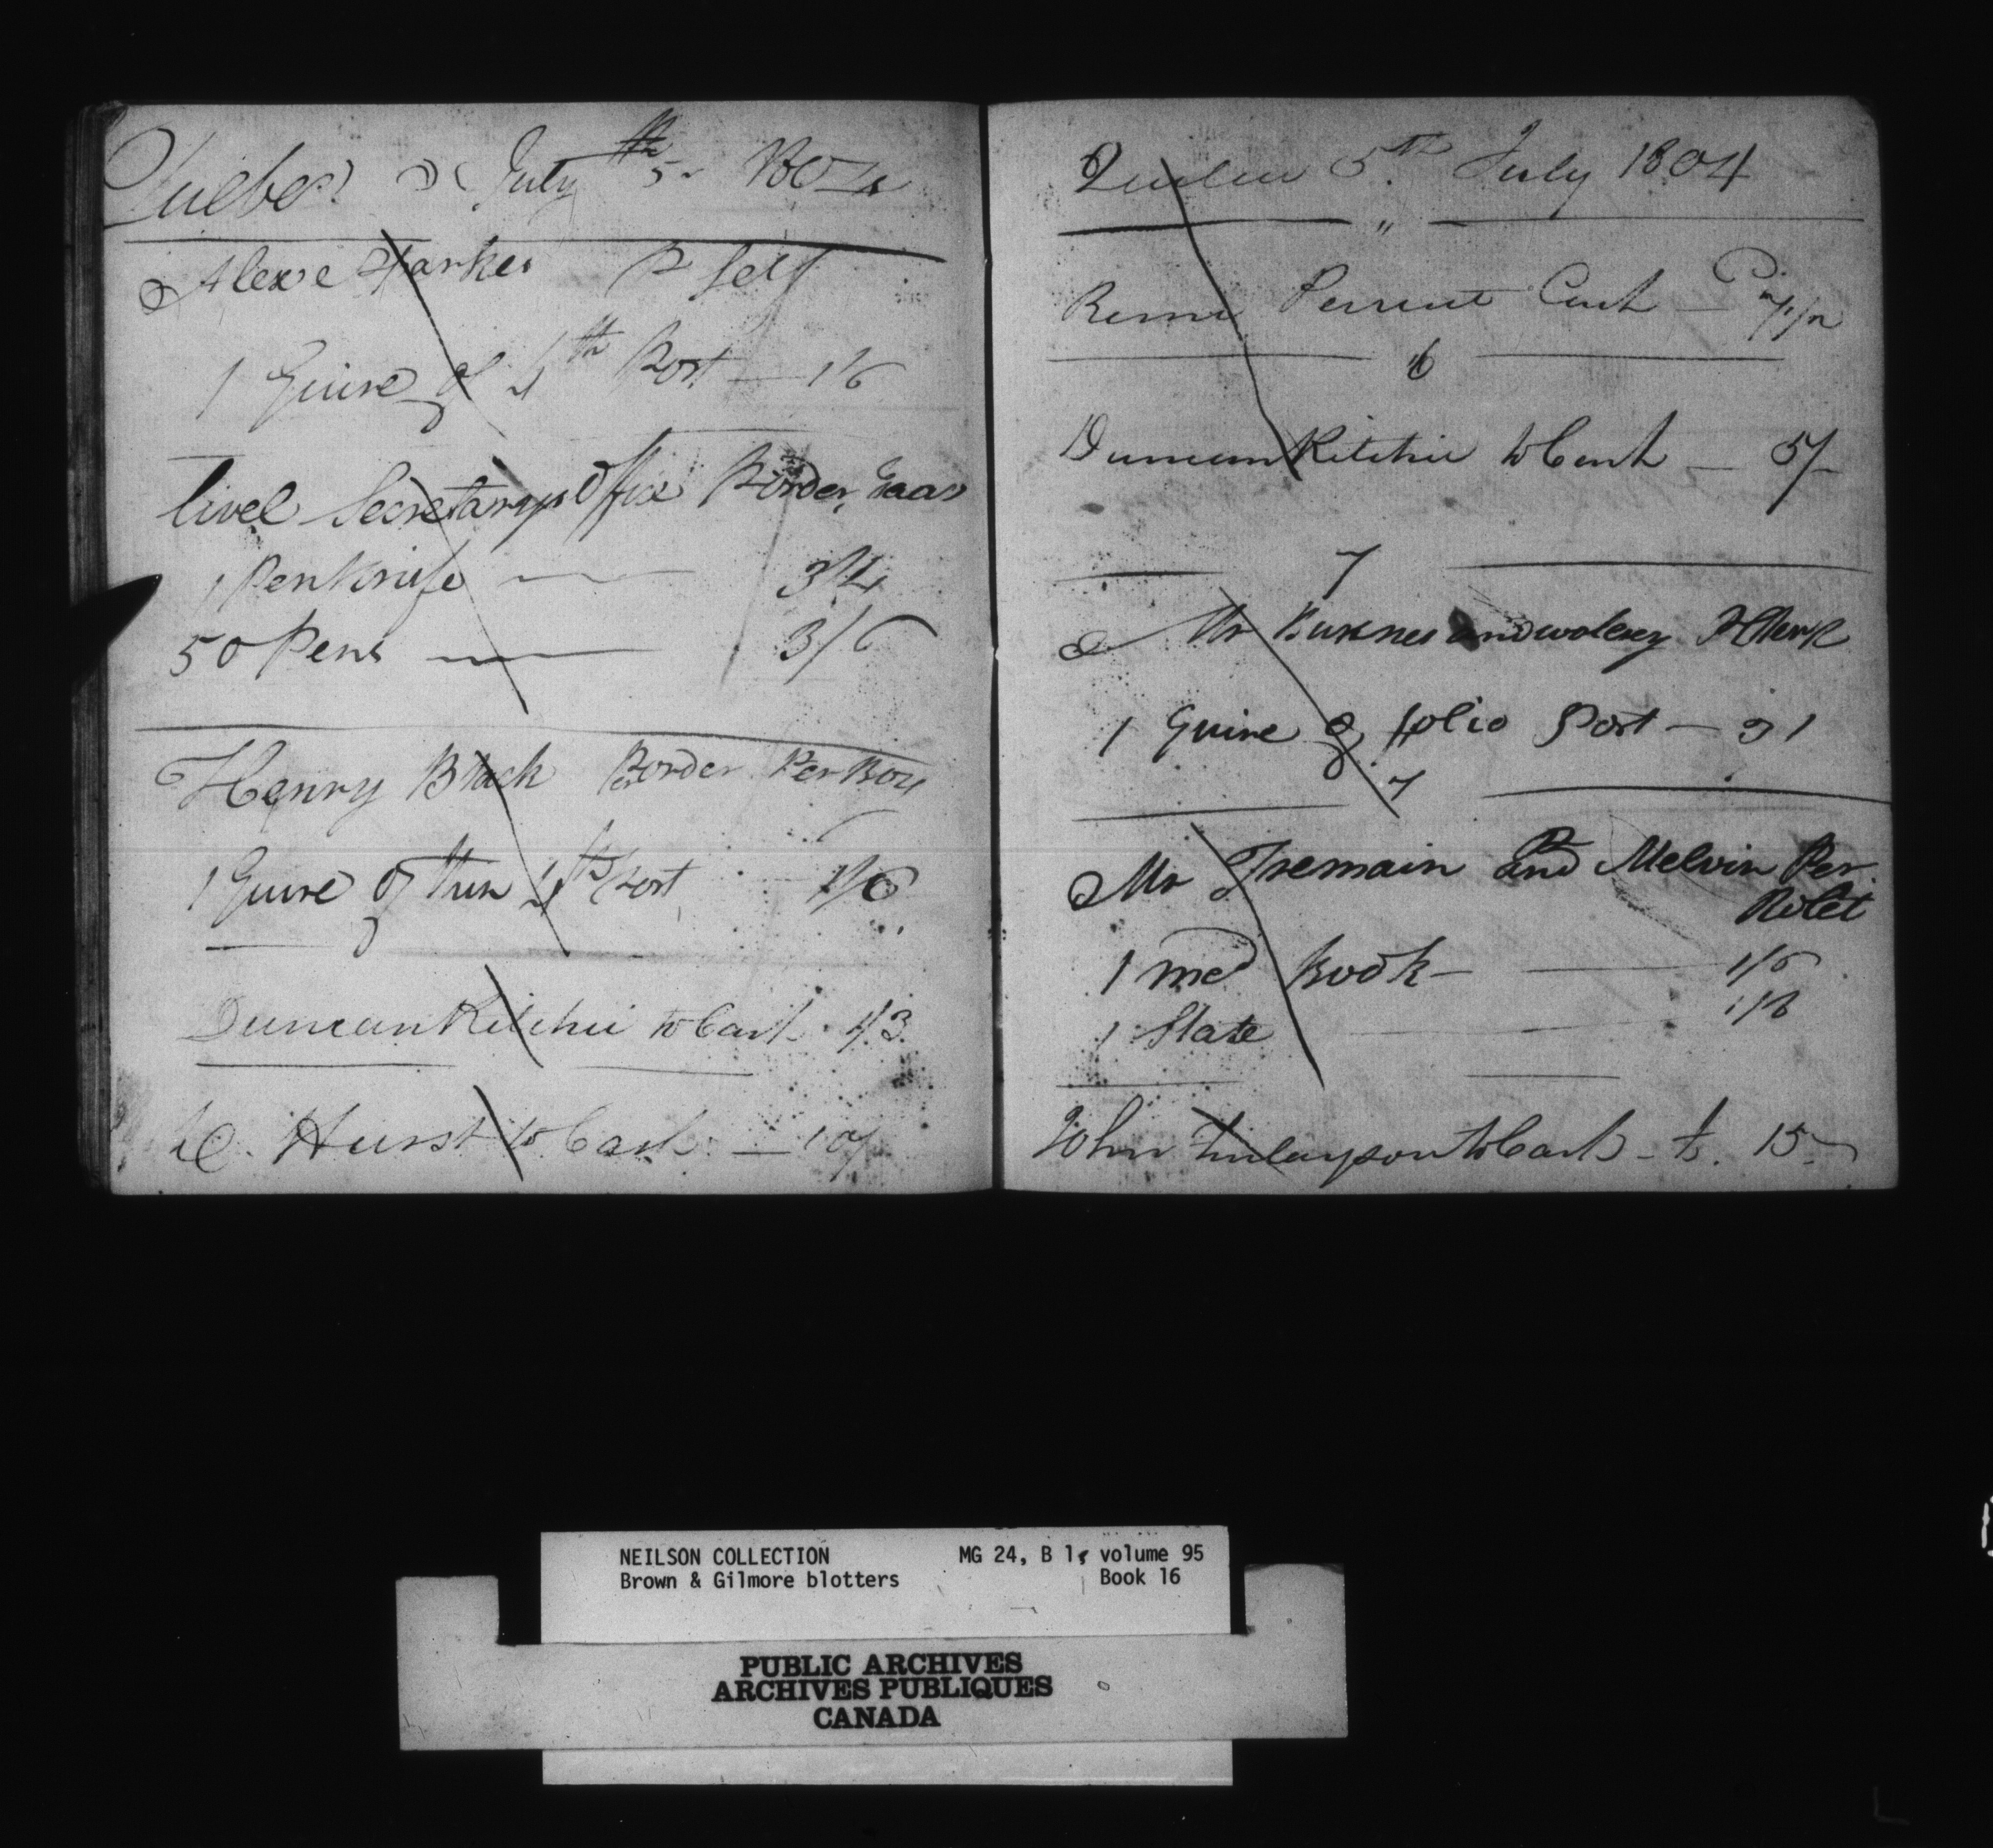 Quebec July 5th 1804
Alexe Parker P Self
1 Quire of 4th Post — 1/6
Civel Secretarys Office P Order
1 Penknife — 3/4
50 Pens — 3/6
Henry Black Porder Per Boy
1 Quire of thin 4th Post 1/6
Duncan Ritchie to Cash 4/3
W. Hurst to Cash — 10/
Quebec 5th July 1804
"
Remi Perrault Cash —
6
Duncan Ritchie to Cash — 5/-
7
Mr Burnes and woolsey P Clerk
1 Quire of folio Post — 3 1
7
Mr Tremain and Melvin Per
Rolet
1 med Book — 1/6
1 Slate 1/8
John Finlayson to Cash - 15 -
NEILSON COLLECTION MG 24, B 1, volume 95
Brown & Gilmore blotters Book 16
PUBLIC ARCHIVES
ARCHIVES PUBLIQUES
CANADA